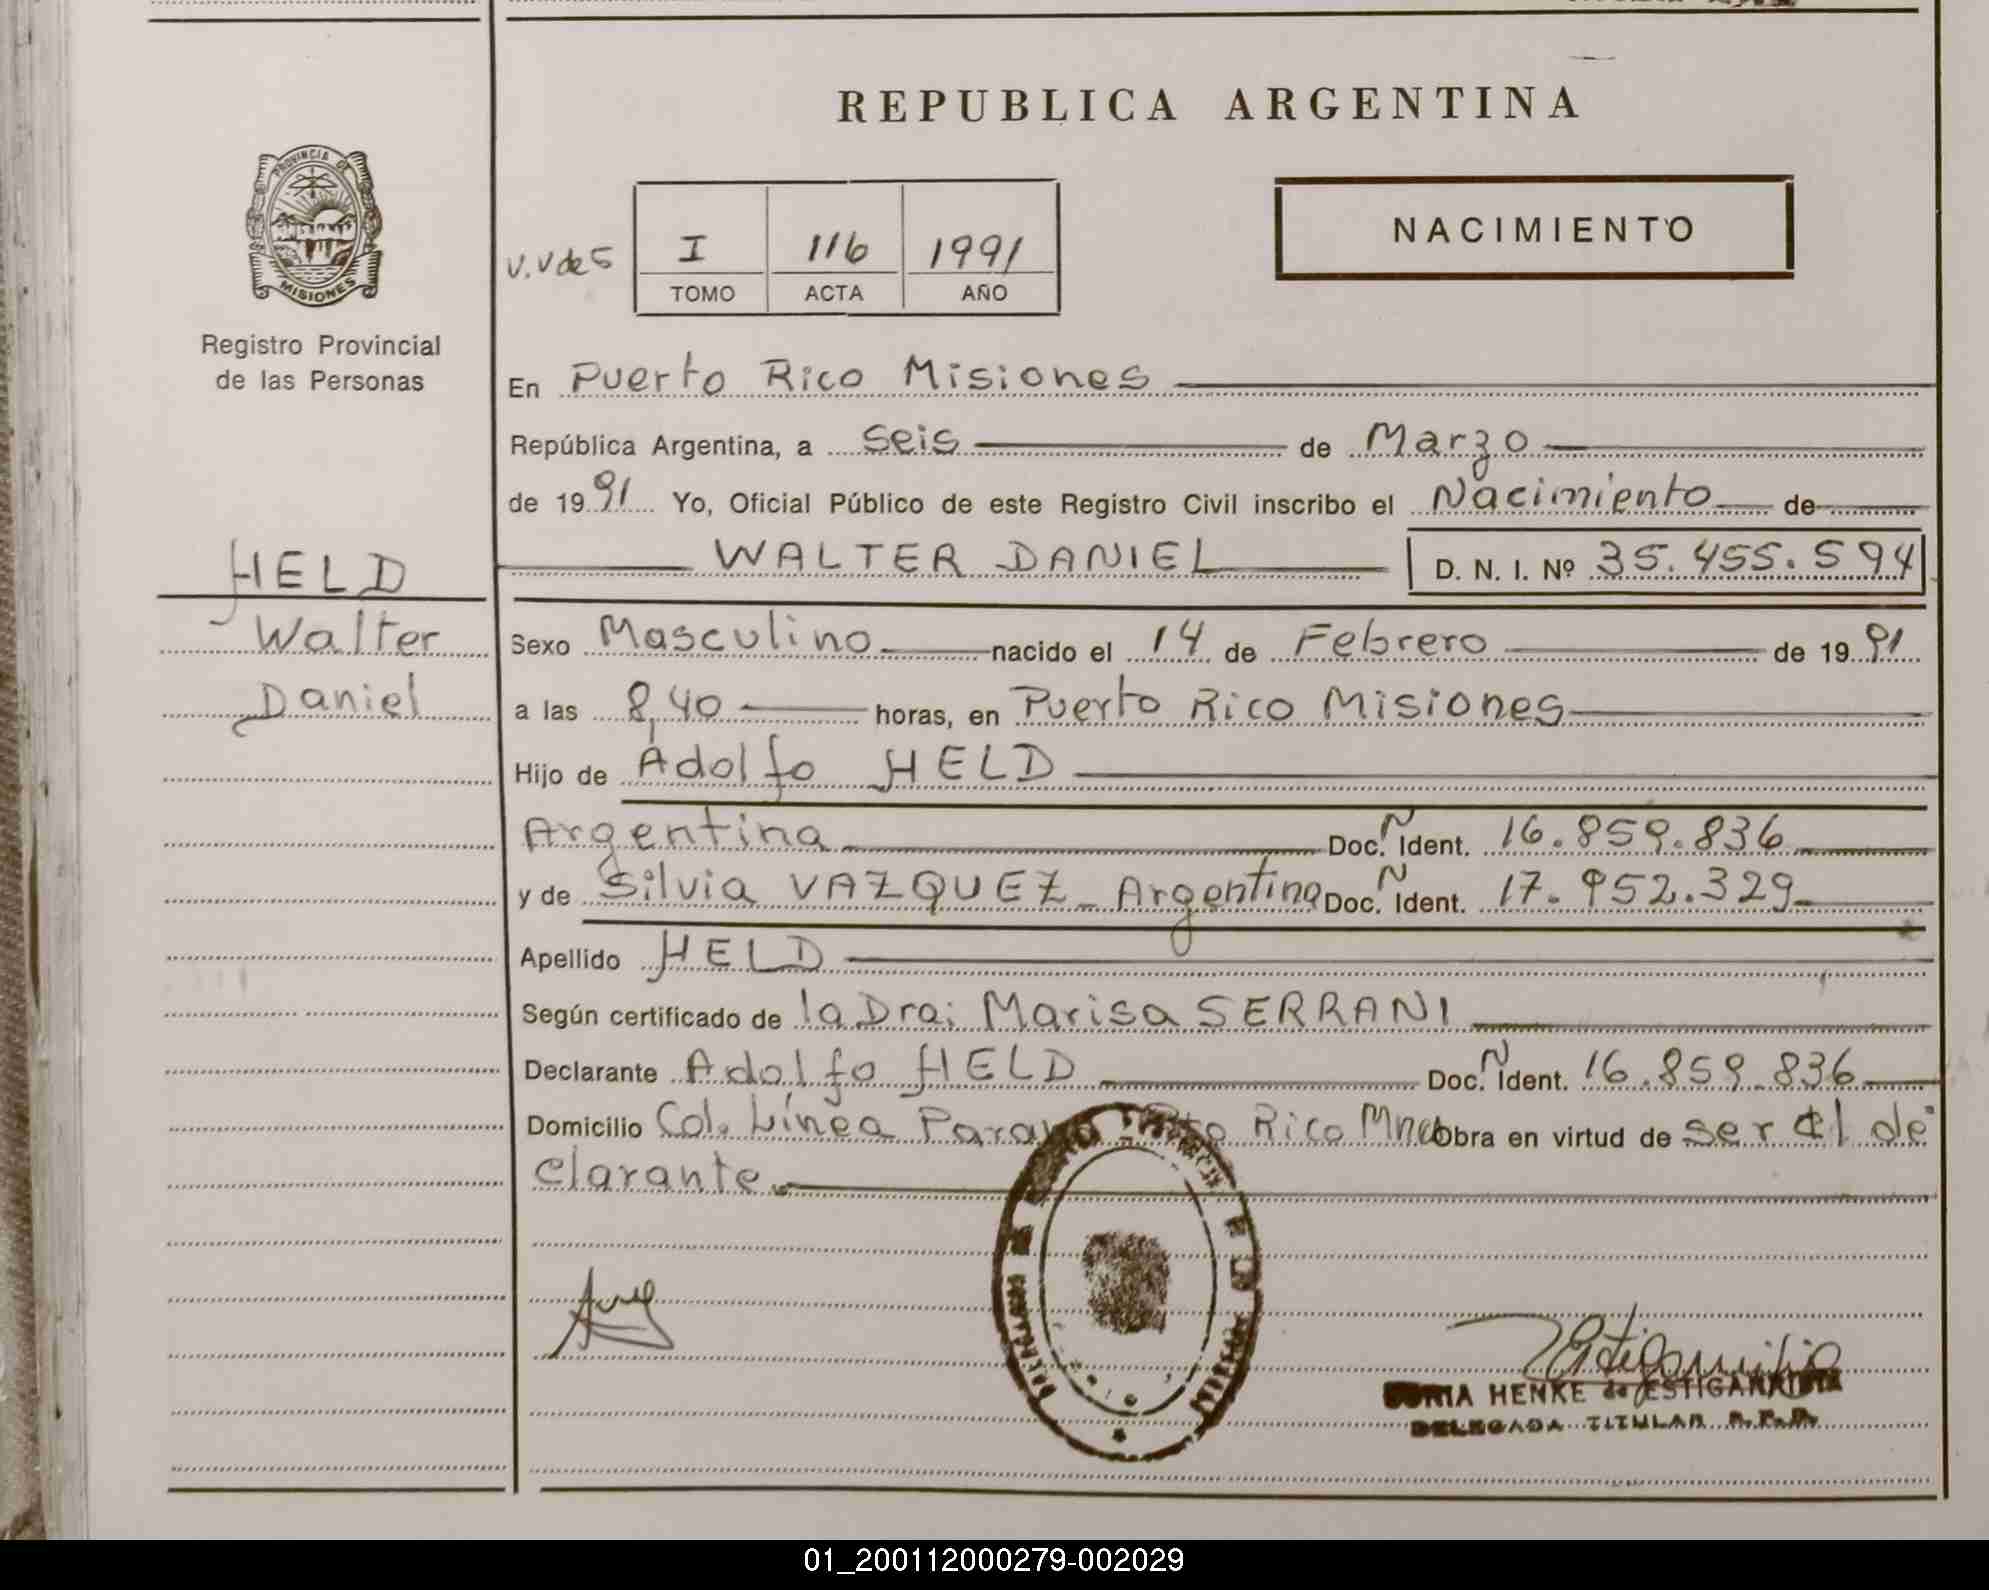 REPUBLICA ARGENTINA
PROVINCIA DE
MISIONES
Registro Provincial
de las Personas
V.V de 5
I 116 1991
TOMO ACTA AÑO
NACIMIENTO
En Puerto Rico Misiones
República Argentina, a seis de Marzo
de 1991 Yo, Oficial Público de este Registro Civil inscribo el Nacimiento de
WALTER DANIEL D. N. I. Nº 35.455.594
HELD
Walter
Daniel
Sexo Masculino nacido el 14 de Febrero de 1991
a las 8,40 horas, en Puerto Rico Misiones
Hijo de Adolfo HELD
Argentina Doc. Ident. 16.859.836
y de Silvia VAZQUEZ - Argentina Doc. Ident. 17.952.329
Apellido HELD
Según certificado de la Dra. Marisa SERRANI
Declarante Adolfo HELD Doc. Ident. 16.859.836
Domicilio Col. Línea Parana Pto Rico Mnes Obra en virtud de ser el de
clarante
HENKE de ESTIGARRIBIA
DELEGADA TITULAR R.P.P.
01_200112000279-002029